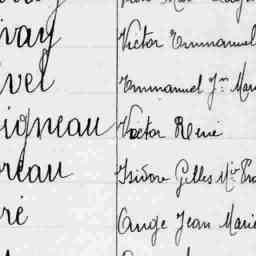 vay Victor Emmanuel
vel Emmanuel Jn Marie
igneau Victor René
reau Isidore Gilles Mie
ré Ange Jean Marie